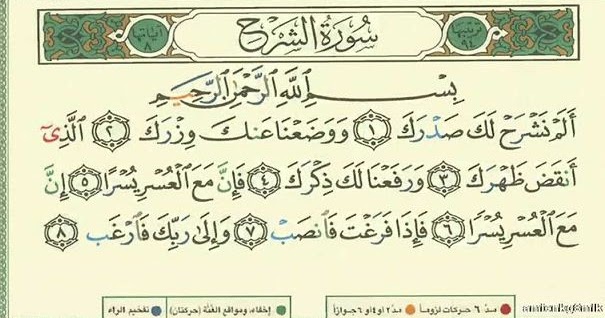 ترتيبها ٩٤ سُورَةُ الشَّرْحِ آياتها ٨
بِسْمِ اللَّهِ الرَّحْمَٰنِ الرَّحِيمِ
أَلَمْ نَشْرَحْ لَكَ صَدْرَكَ ١ وَوَضَعْنَا عَنكَ وِزْرَكَ ٢ الَّذِي
أَنقَضَ ظَهْرَكَ ٣ وَرَفَعْنَا لَكَ ذِكْرَكَ ٤ فَإِنَّ مَعَ الْعُسْرِ يُسْرًا ٥ إِنَّ
مَعَ الْعُسْرِ يُسْرًا ٦ فَإِذَا فَرَغْتَ فَانصَبْ ٧ وَإِلَىٰ رَبِّكَ فَارْغَب ٨
مدّ ٦ حركات لزوماً مدّ ٢ أو ٤ أو ٦ جوازاً إخفاء، ومواقع الغُنَّة (حركتان) تفخيم الراء